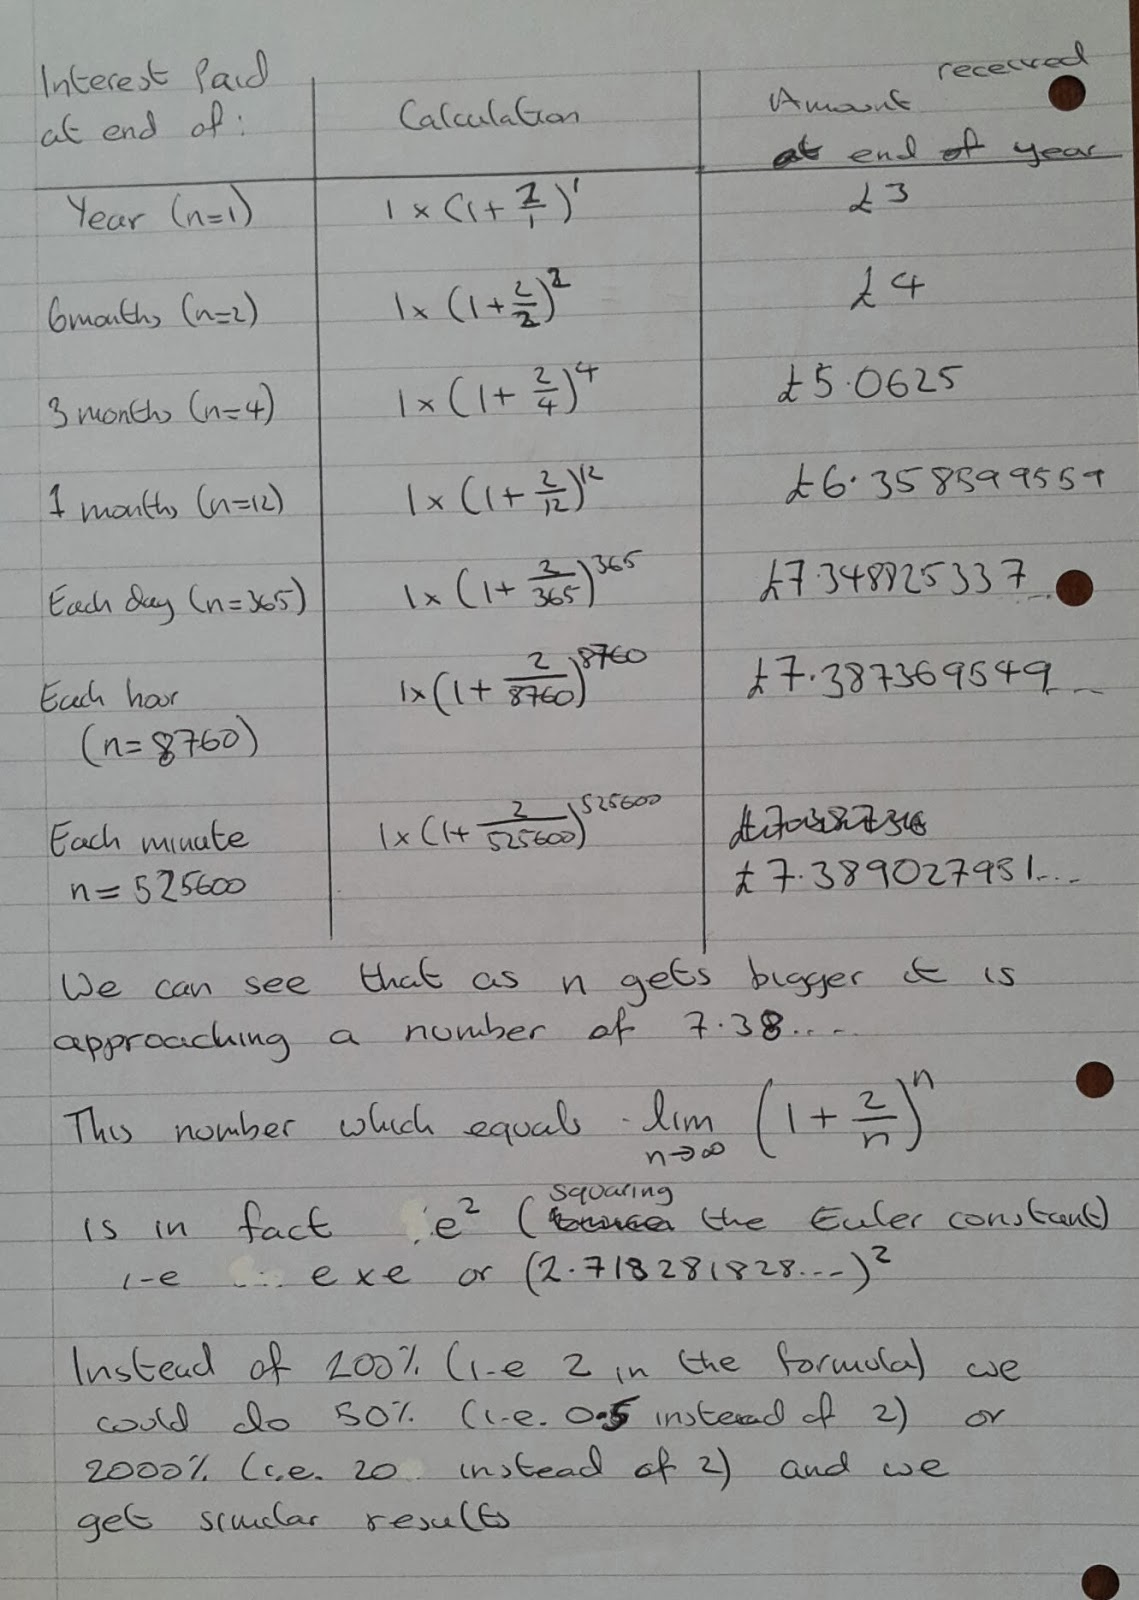 Interest Paid at end of: | Calculation | Amount received at end of year
Year (n=1) | 1 × (1 + 2/1)^1 | £3
6 months (n=2) | 1 × (1 + 2/2)^2 | £4
3 months (n=4) | 1 × (1 + 2/4)^4 | £5.0625
1 months (n=12) | 1 × (1 + 2/12)^12 | £6.358599559
Each day (n=365) | 1 × (1 + 2/365)^365 | £7.348825337...
Each hour (n=8760) | 1 × (1 + 2/8760)^8760 | £7.387369549...
Each minute n=525600 | 1 × (1 + 2/525600)^525600 | £7.389027951...
We can see that as n gets bigger it is
approaching a number of 7.38....
This number which equals lim n→∞ (1 + 2/n)^n
is in fact e² (squaring the Euler constant)
i-e e×e or (2.718281828...)²
Instead of 200% (i-e 2 in the formula) we
could do 50% (i.e. 0.5 instead of 2) or
2000% (i.e. 20 instead of 2) and we
get similar results